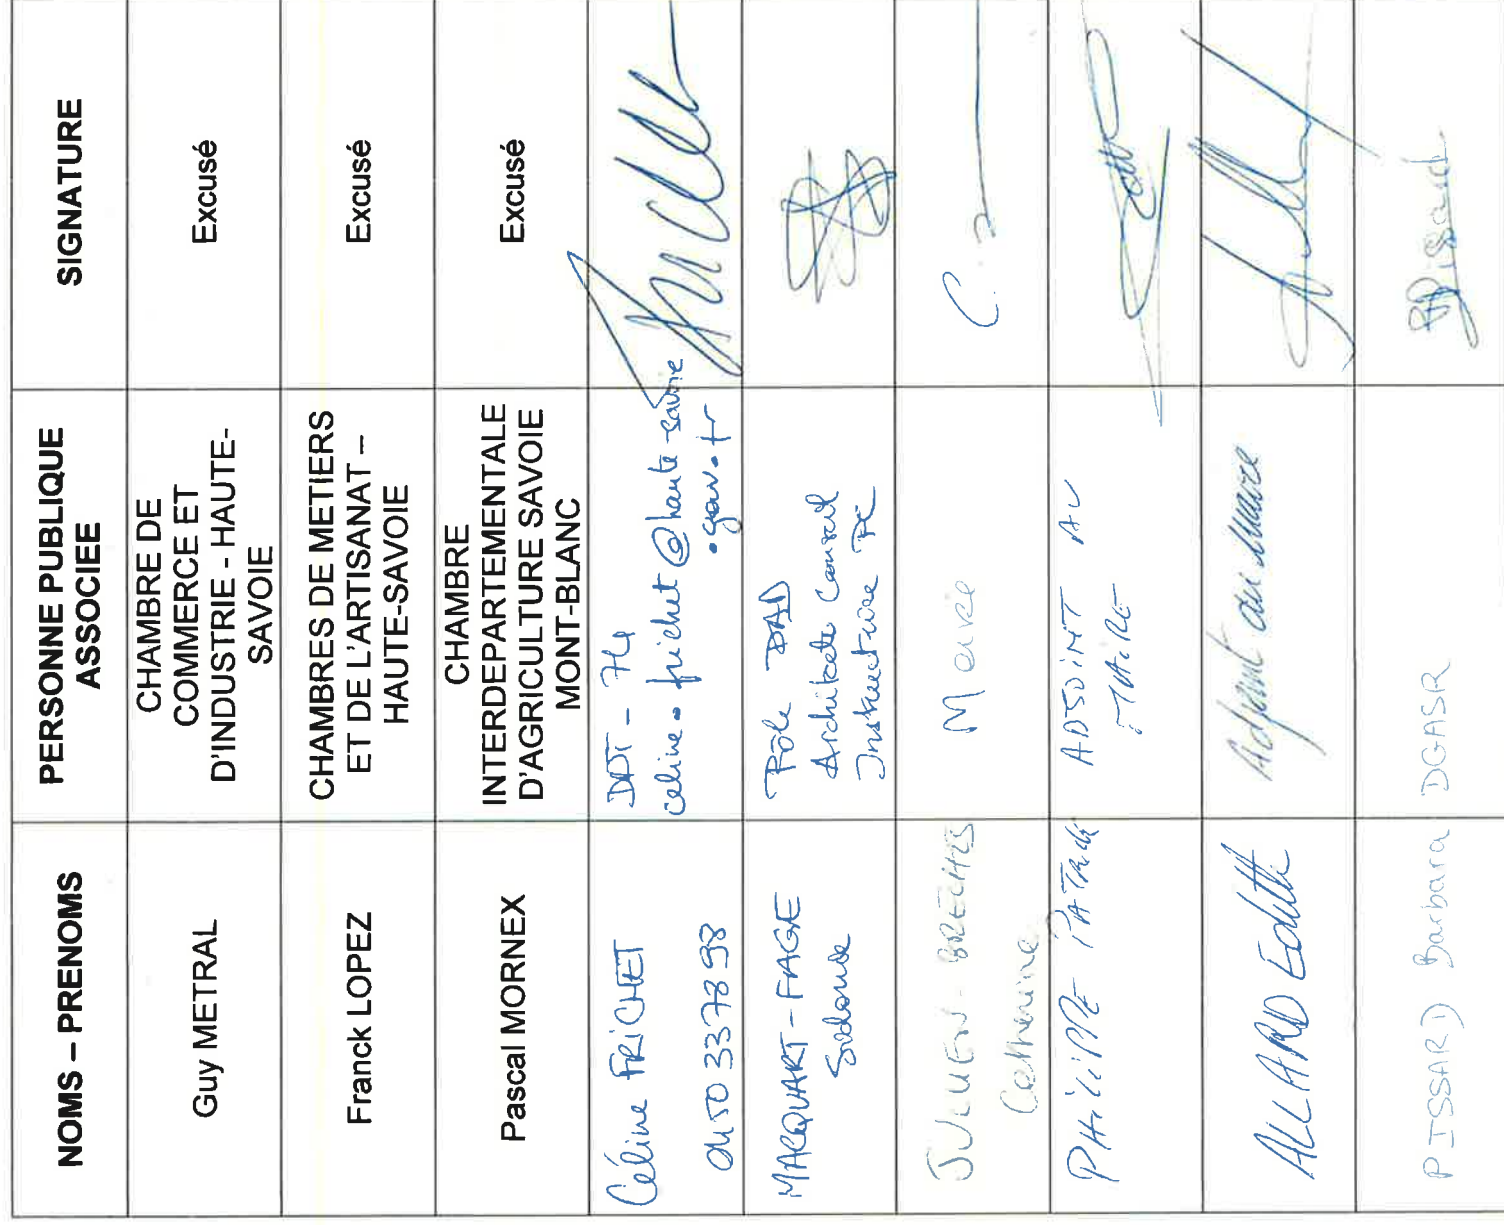 NOMS – PRENOMS
PERSONNE PUBLIQUE
ASSOCIEE
SIGNATURE
Guy METRAL
CHAMBRE DE
COMMERCE ET
D'INDUSTRIE - HAUTE-
SAVOIE
Excusé
Franck LOPEZ
CHAMBRES DE METIERS
ET DE L'ARTISANAT –
HAUTE-SAVOIE
Excusé
Pascal MORNEX
CHAMBRE
INTERDEPARTEMENTALE
D'AGRICULTURE SAVOIE
MONT-BLANC
Excusé
Céline FRICHET
04 50 33 78 98
DDT - 74
celine.frichet@haute-savoie
.gouv.fr
MACQUART-FAGE
Pôle DAD
Architecte Conseil
Instructrice PC
JULLIEN-BRECHES
Catherine
Maire
PHILIPPE PATRICK
ADJOINT AU
MAIRE
ALLARD Edith
Adjoint au Maire
PISSARD Barbara
DGASR